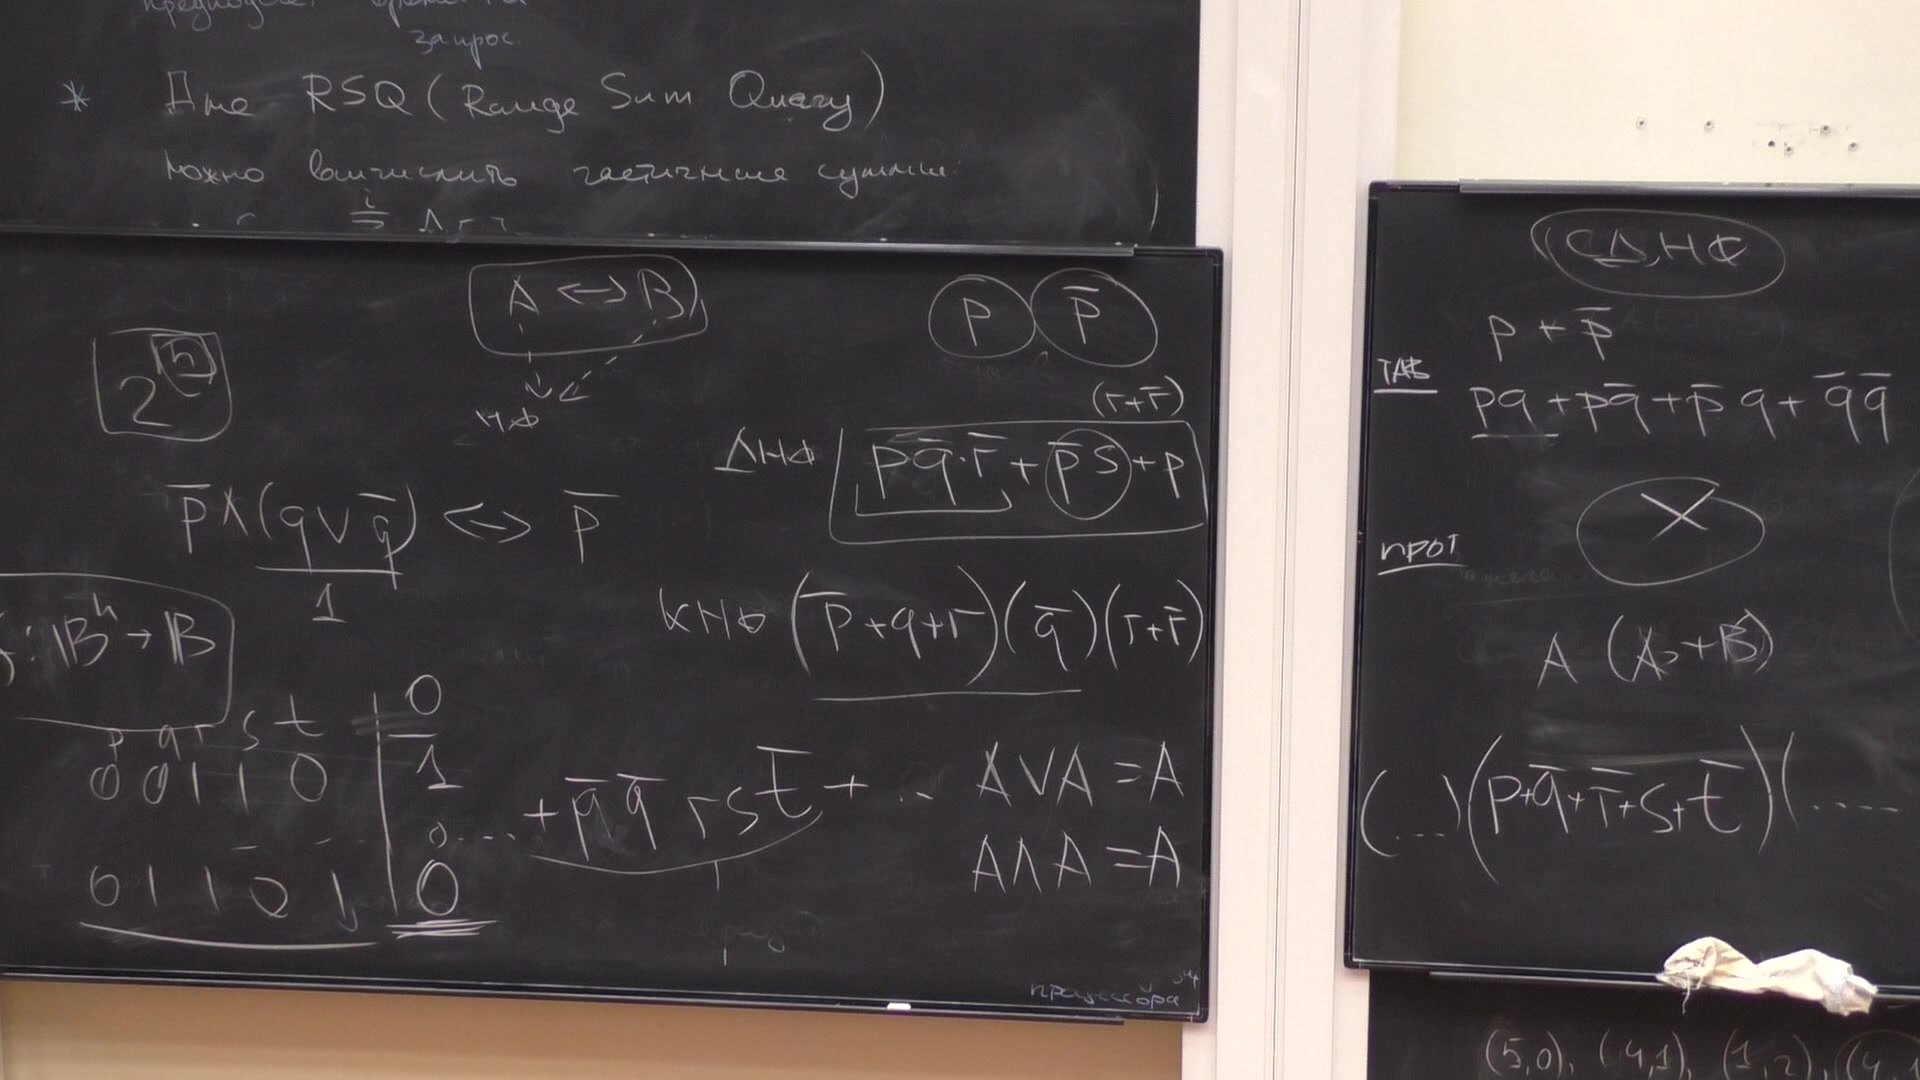 запрос.
* Для RSQ (Range Sum Query)
можно вычислить частичные суммы:
A ↔ B
НФ
2⁵
p̅ ∧ (q ∨ q̅) ↔ p̅
1
: 𝔹ⁿ → 𝔹
p q r s t | 0
0 0 1 1 0 | 1
0 1 1 0 1 | 0
....+ q̅ q̅ r s t̅ + ...
p p̅
(r+r̅)
ДНФ p q̅·r̅ + p̅ s + p
КНФ (p̅+q+r)(q̅)(r+r̅)
A ∨ A = A
A ∧ A = A
процессора
СДНФ
p + p̅
ТАВ
pq + pq̅ + p̅q + q̅q̅
X
ПРОТ
A (A + B)
(...)(p+q̅+r̅+s+t̅)(.....
(5,0), (4,1), (1,2), (4,1